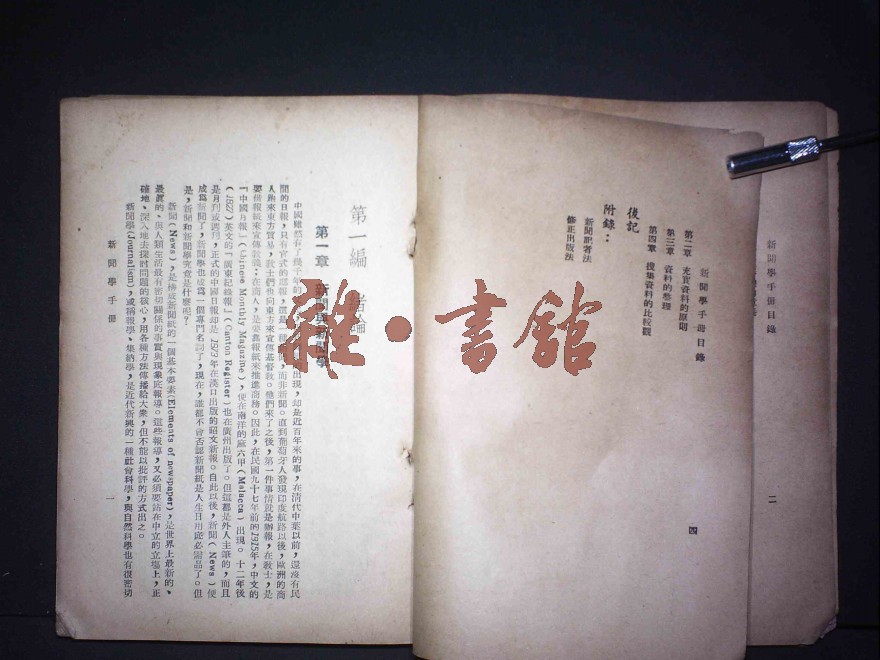 新聞學手冊目錄
二
新聞學手冊目錄
第二章 充實資料的原則
第三章 資料的整理
第四章 搜集資料的比較觀
後記
附錄：
新聞記者法
修正出版法
四
雜·書館
第一編 緒論
第一章 新聞與新聞學
中國雖然有了幾千年的出現，却是近百年來的事，在清代中葉以前，還沒有民
間的日報，只有官式的邸報，而非新聞。直到葡萄牙人發現印度航路以後，歐洲的商
人跑來東方貿易，教士們也向東方來宣傳基督教。他們來了之後，第一件事情就是辦報，在教士，是
要借報紙來宣傳教義；在商人，是要靠報紙來推進商務。因此，在民國九十七年前的1815年，中文的
『中國月報』（Chinese Monthly Magazine），便在南洋的麻六甲（Malacca）出現。十二年後
（1827）英文的『廣東記錄報』（Canton Register）也在廣州出版了。但這都是外人主筆的，而且
是月刊或週刊，正式的中國日報却是1873年在漢口出版的昭文新報。自此以後，新聞（News）便
成爲新聞了，新聞學也成爲一個專門名詞了，現在，誰都不會否認新聞紙是人生日用底必需品了。但
是，新聞和新聞學究竟是什麼呢？
新聞（News），是構成新聞紙的一個基本要素（Elements of newspaper），是世界上最新的、
最眞的、與人類生活最有密切關係的事實與現象底報導。這些報導，又必須要站在中立的立場上，正
確地、深入地去探討問題的核心，用各種方法傳播給大衆，但不能以批評的方式出之。
新聞學（Journalism），或稱報學、集納學，是近代新興的一種社會科學，與自然科學也有很密切
新聞學手冊
一